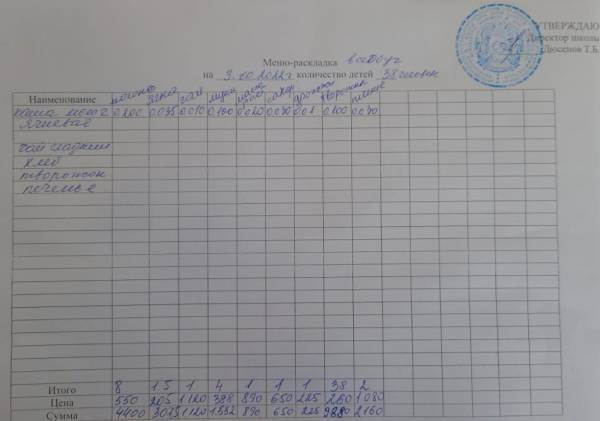 УТВЕРЖДАЮ
Директор школы
Дюсенов Т.Б.
Меню-раскладка всеобуч
на 9.10.2022г количество детей 38 человек
Наименование молоко ячка чай мука масло сахар дрожжи творожок печенье
каша мол 0.200 0.035 0.010 0.100 0.020 0.030 0.01 0.100 0.030
ячневая
чай сладкий
хлеб
творожок
печенье
Итого 8 1.5 1 4 1 1 1 38 2
Цена 550 205 1120 388 890 650 225 260 1080
Сумма 4400 1120 1.552 890 650 225 9880 2160